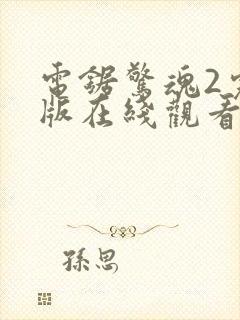 電鋸驚魂2
版在綫觀看
孫思